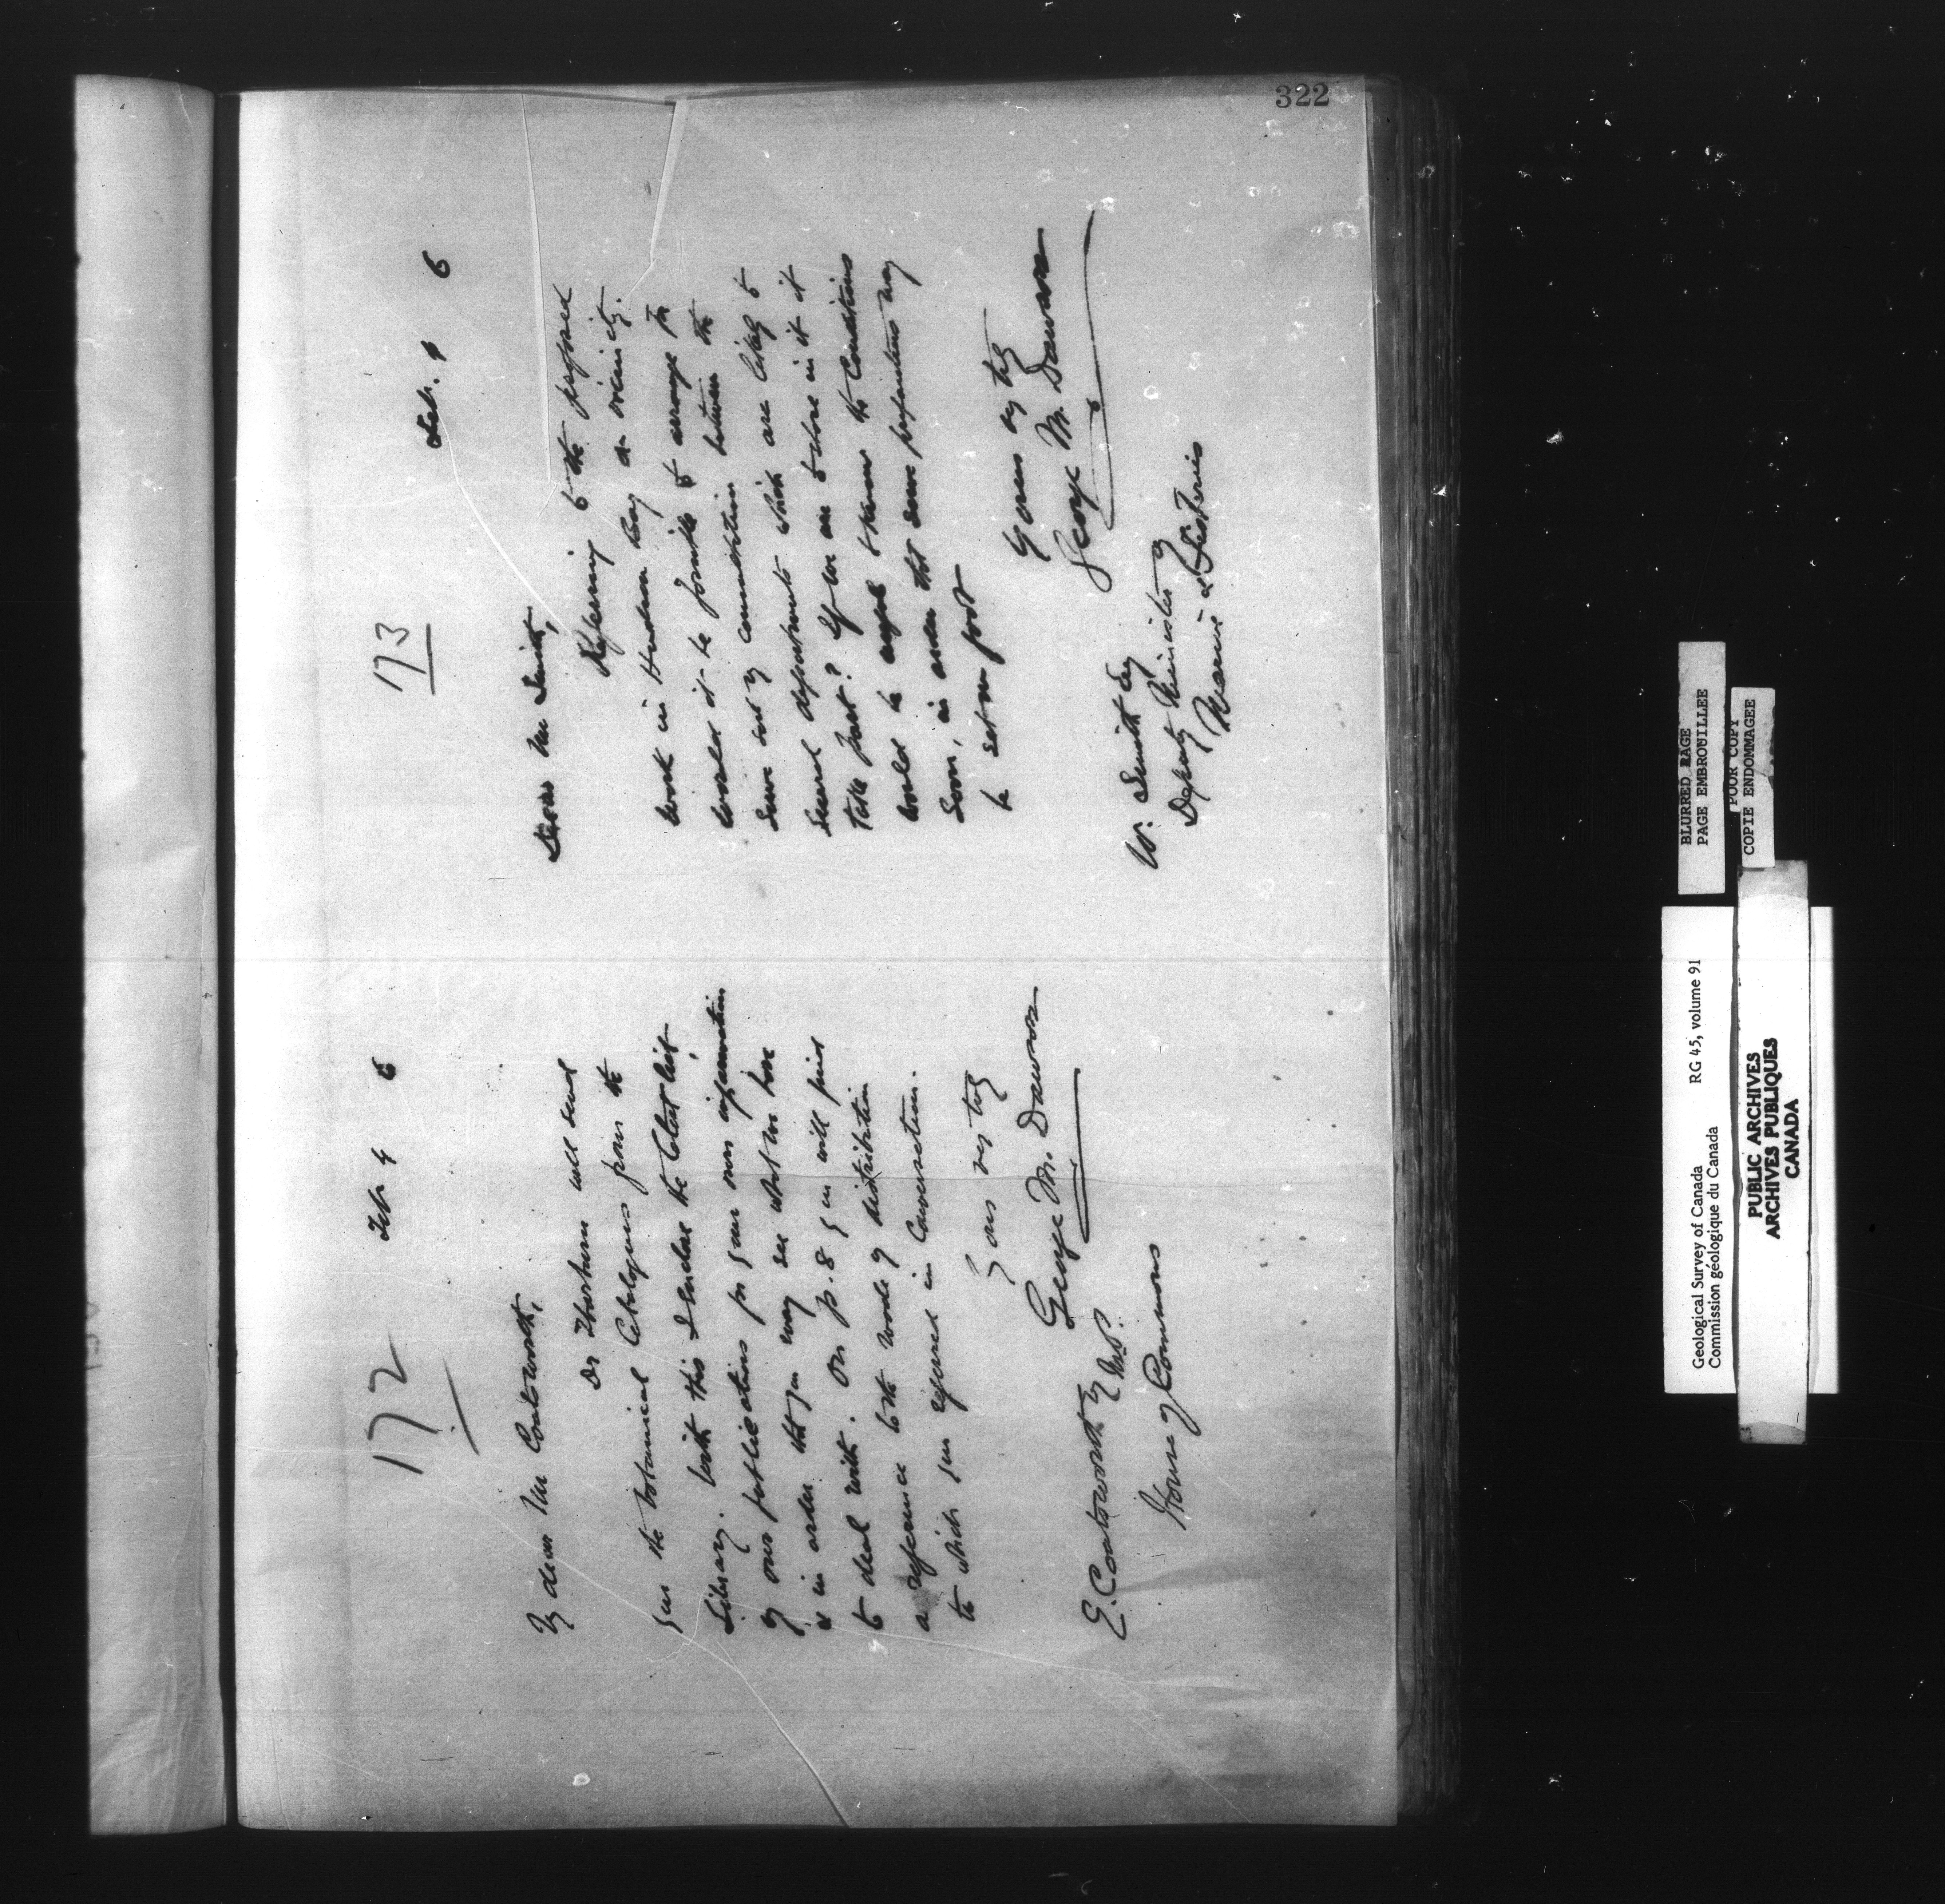 322
172
Feb. 4 6
My dear Mr Coatsworth,
Dr Thorburn will send
you the botanical Catalogues from the
Library. With this I enclose the latest list
of our publications for your own information
& in order that you may see what we have
to deal with. On p. 8 you will find
a reference to the mode of distribution
to which you referred in Conversation.
Yours very truly
George M. Dawson
E. Coatsworth Esq M.P.
House of Commons
173
Feb. 4 6
Dear Mr Smith,
Referring to the proposed
work in Hudson Bay & vicinity.
Would it be possible to arrange for
some sort of consultation between the
several departments which are likely to
take part? If we are to share in it it
would be well to know the Conditions
soon, in order that some preparations may
be set on foot
Yours very truly
George M. Dawson
W. Smith Esq
Deputy Minister of
Marine & Fisheries
BLURRED PAGE
PAGE EMBROUILLEE
POOR COPY
COPIE ENDOMMAGEE
Geological Survey of Canada RG 45, volume 91
Commission géologique du Canada
PUBLIC ARCHIVES
ARCHIVES PUBLIQUES
CANADA